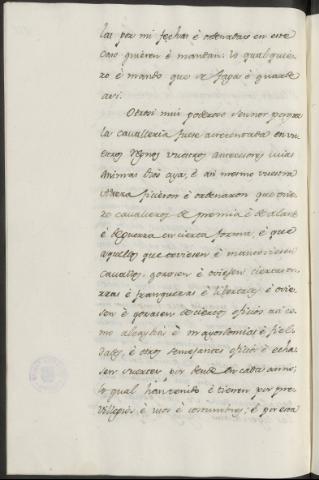 las por mi fechas è ordenadas en este
caso quieren è mandan: Yo qual quie
ro è mando que se faga è guarde
asi.
Otrosi mui poderoso Sennor porque
la cavalleria fuese acrecentada en vu
estros Regnos vuestros antecesores cuias
animas Dios aya, è asi mesmo vuestra
Alteza ficieron è ordenaron que ovie
se cavalleros de premia è de alarde
è de guerra en cierta forma; è que
aquellos que oviesen è mantoviesen
cavallos, gozasen è oviesen ciertas on
rras è franquezas è libertades è ovie
sen è gozasen de ciertos oficios asi co
mo alcaldias è mayordomias è fiel
dades, è otros semejantes oficios è echa
sen suertes por donde en cada anno;
lo qual han tenido è tienen por pre
villegios è usos è costumbres; è por esta